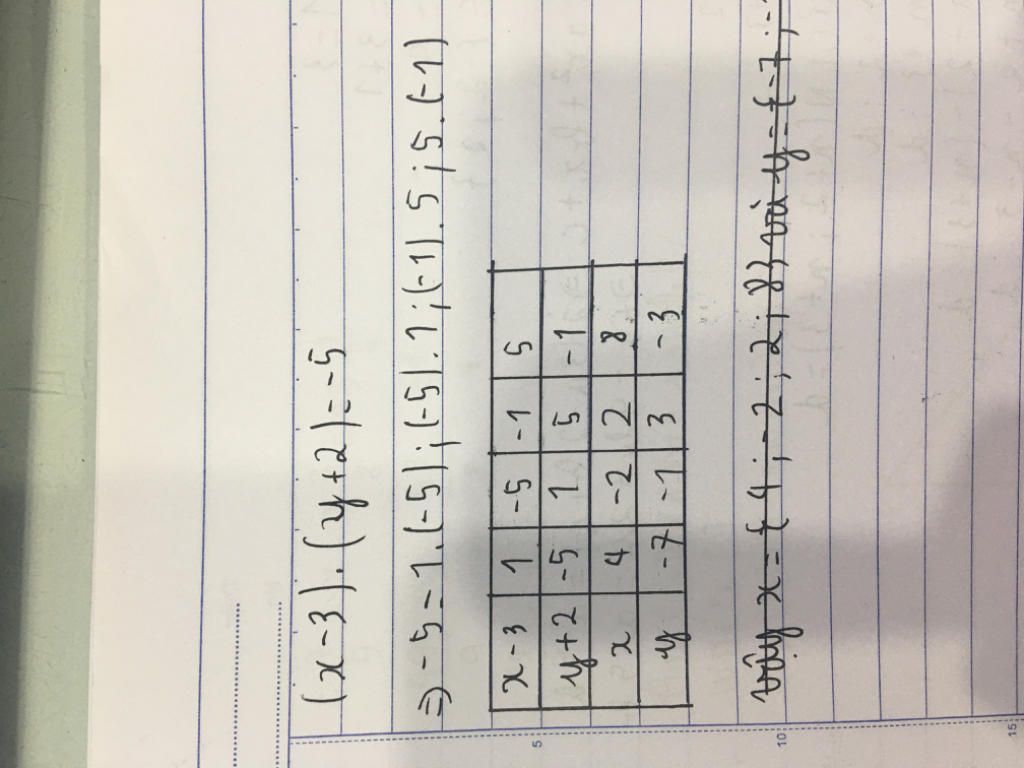 (x-3).(y+2)=-5
⇒ -5=1.(-5);(-5).1;(-1).5;5.(-1)
x-3 1 -5 -1 5
y+2 -5 1 5 -1
x 4 -2 2 8
y -7 -1 3 -3
vậy x={4;-2;2;8} và y={-7;-
5
10
15